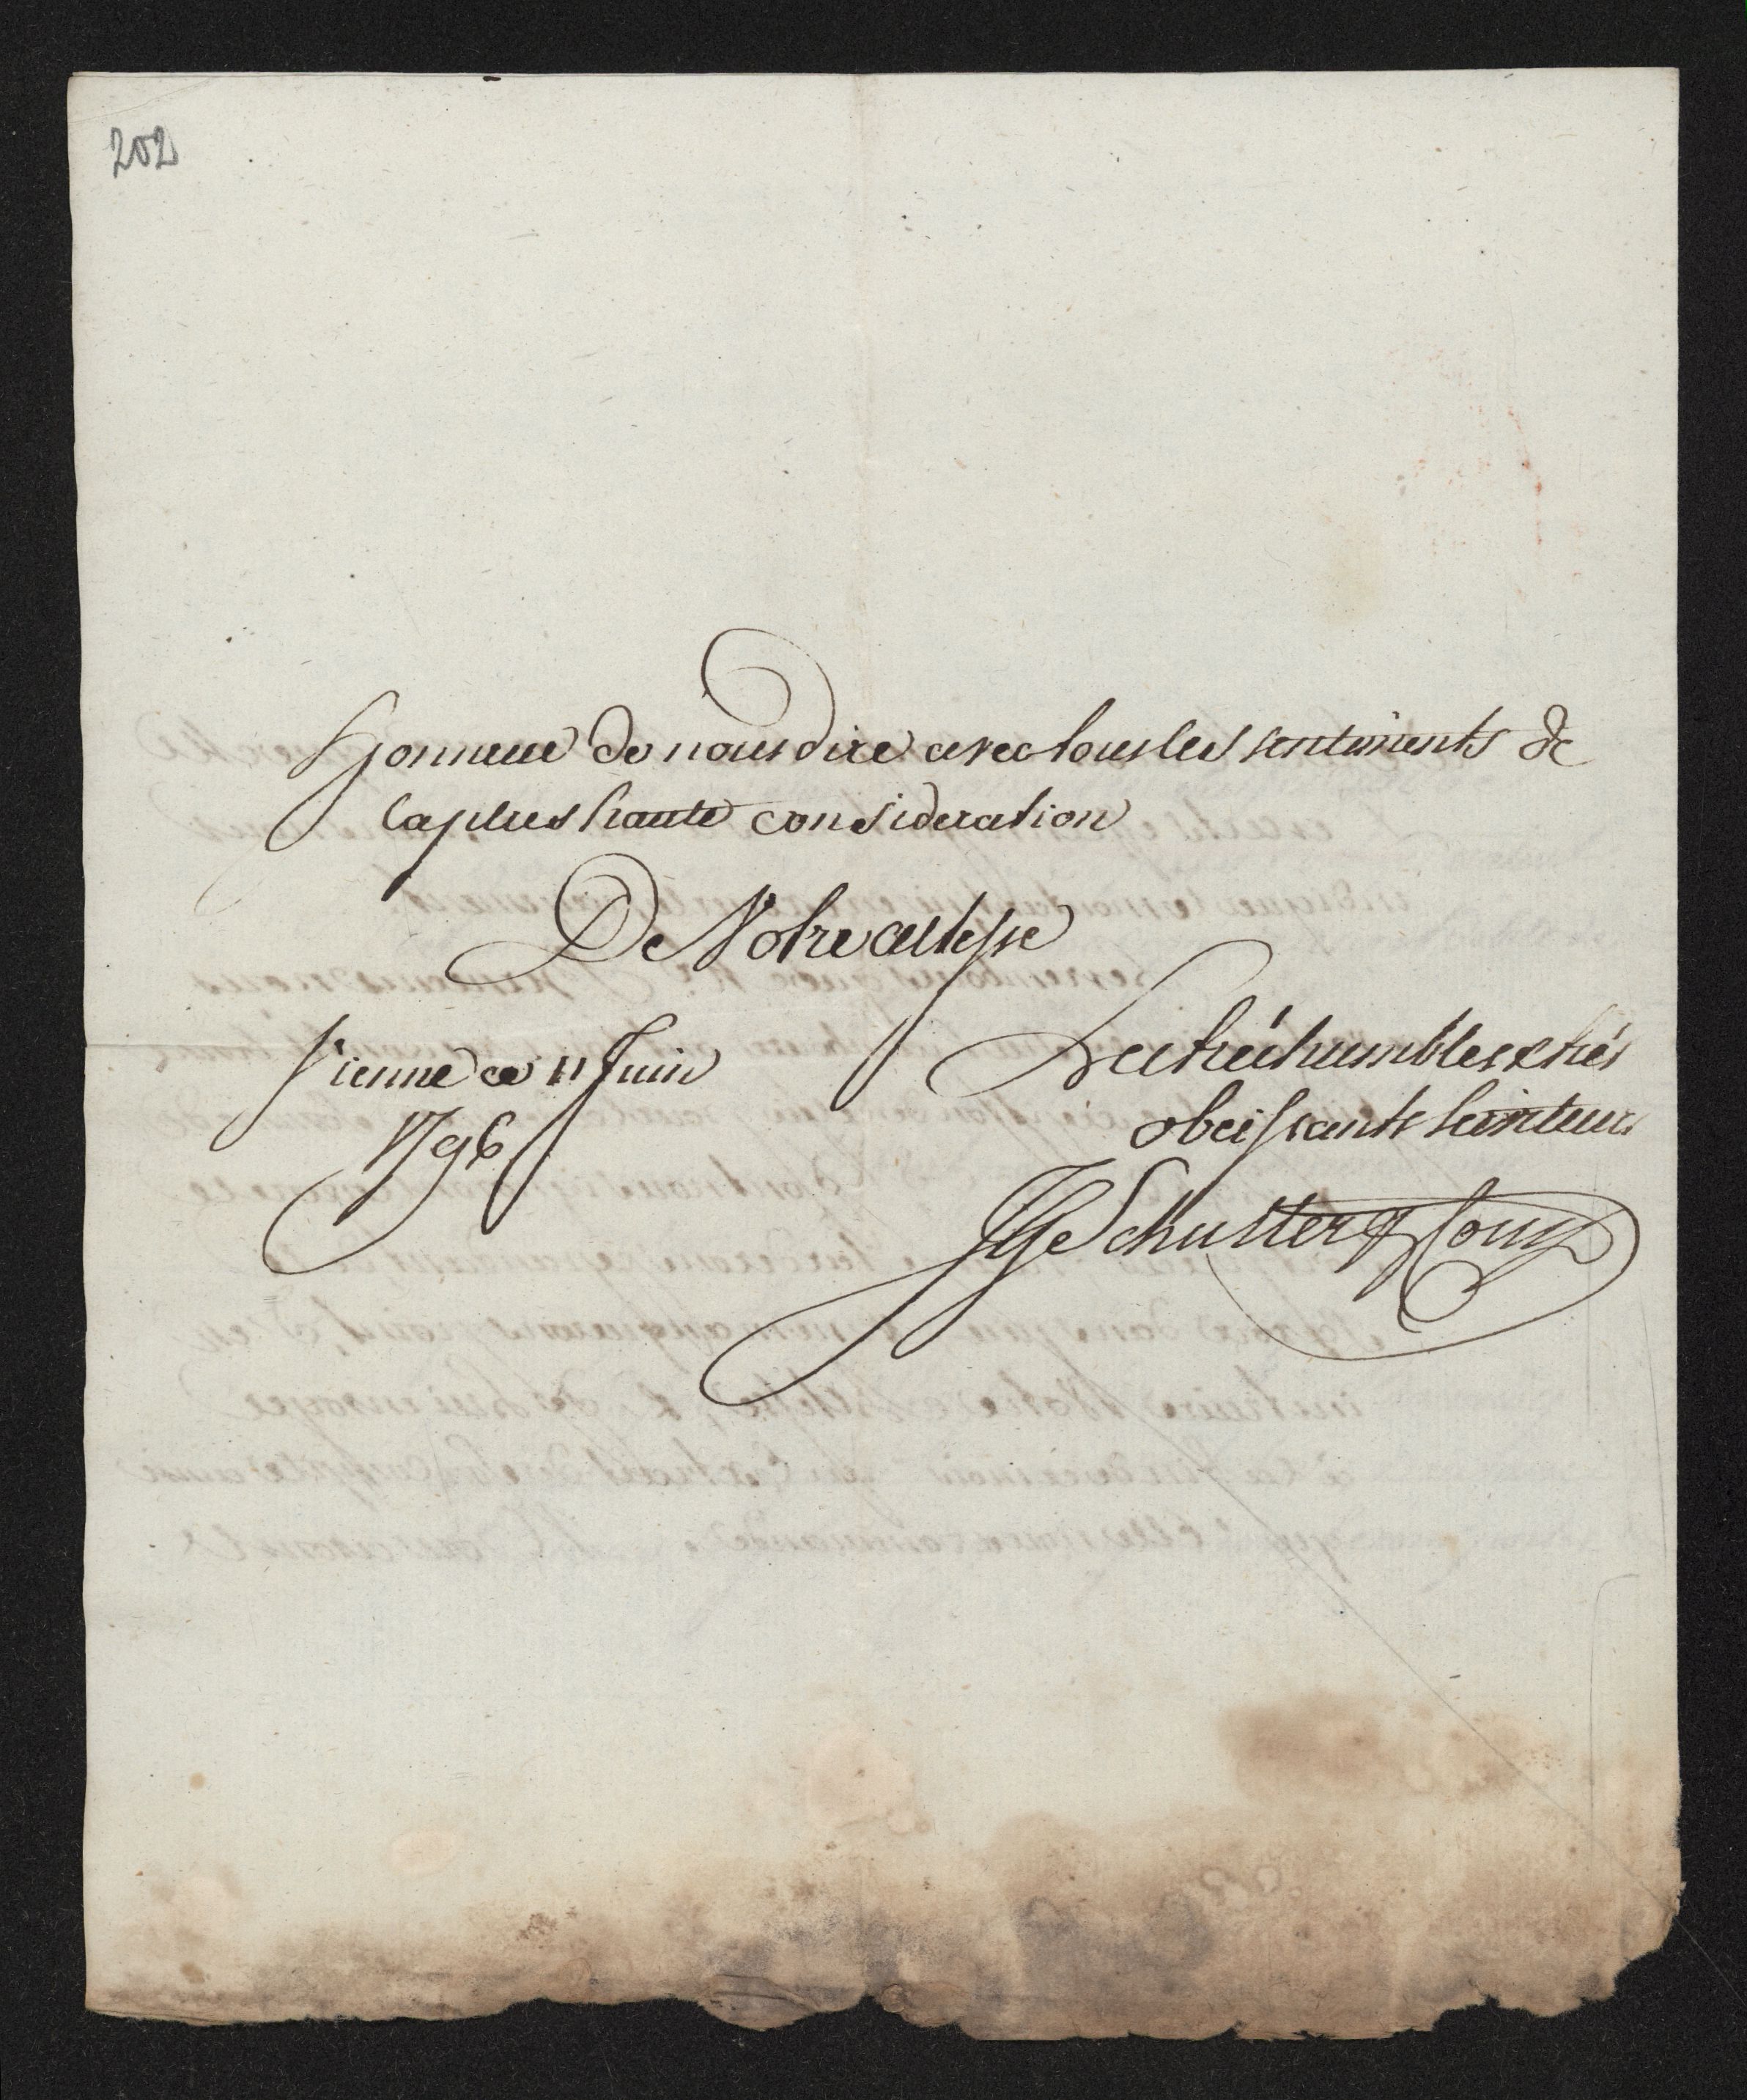 202
Honneur de nous dire avec tous les sentiments de
la plus haute consideration
De Votre altesse
Vienne ce 11 Juin
1796
Les trés humbles et trés
obeissants serviteurs
Schuster & Comp